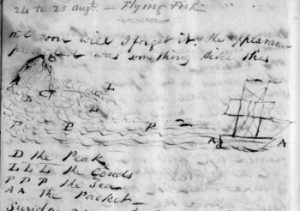 24 to 25 Augt. — Flying Fish
not soon will I forget it. the appearance
was something like this
P P P
A A
D the Peak
the Clouds
P P P the Sea
A A the Packet —
Sunday